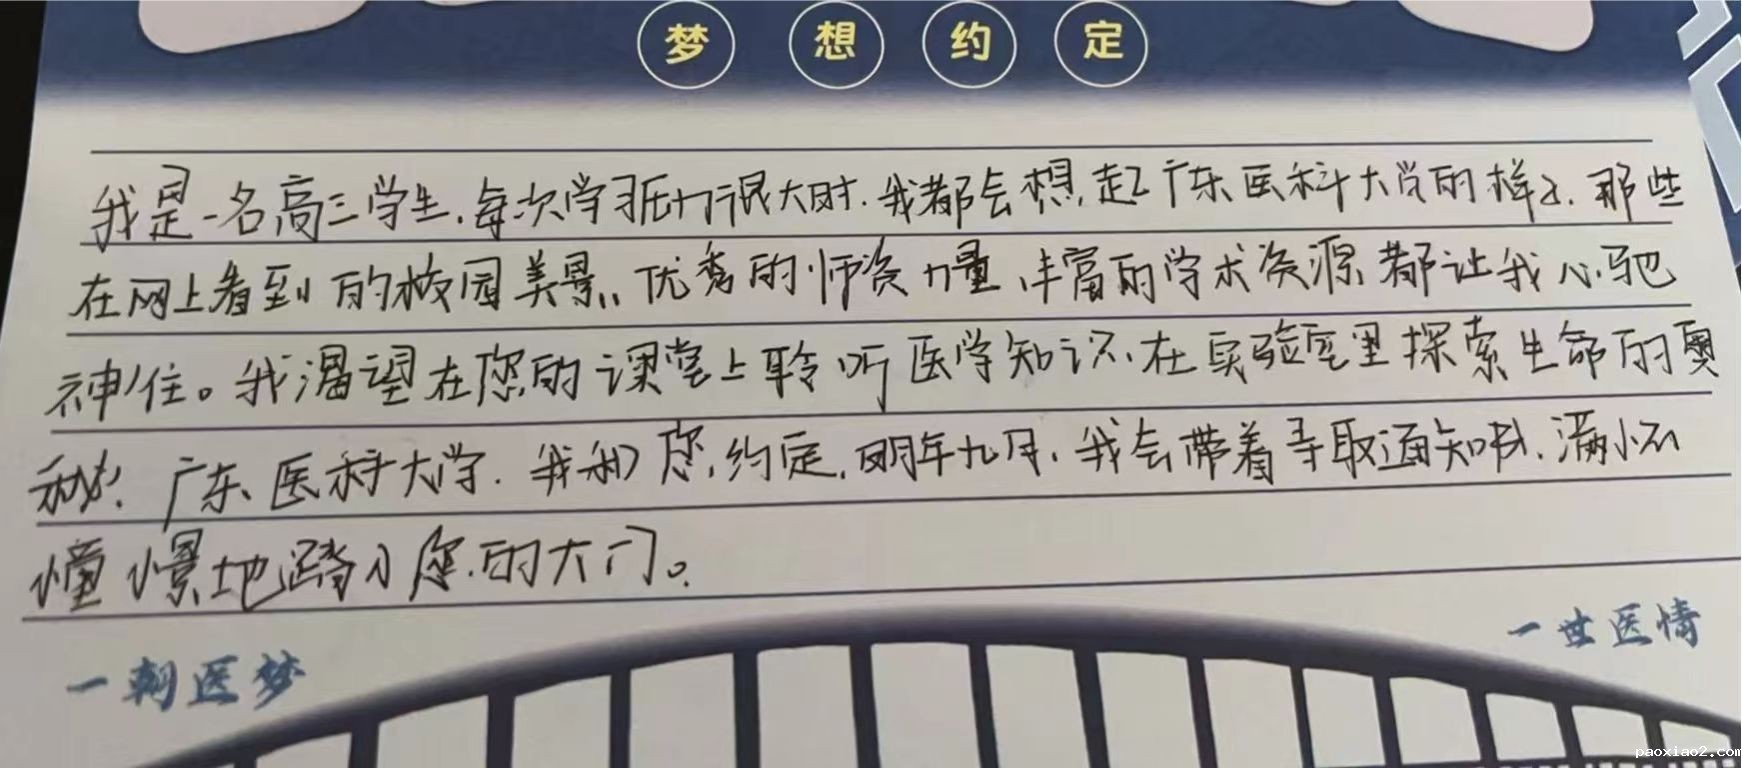 梦想约定
我是一名高三学生,每次学习压力很大时,我都会想起广东医科大学的样子,那些
在网上看到的校园美景、优秀的师资力量、丰富的学术资源都让我心驰
神往。我渴望在您的课堂上聆听医学知识,在实验室里探索生命的奥
秘。广东医科大学,我和您约定,明年九月,我会带着录取通知书,满怀
憧憬地踏入您的大门。
一朝医梦
一世医情
paoxiao2.com